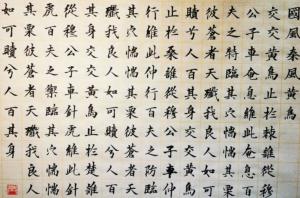 國風秦風黃鳥
交交黃鳥止於棘誰從穆
公子車奄息維此奄息百
夫之特臨其穴惴惴其栗
彼蒼者天殲我良人如可
贖兮人百其身交交黃鳥
止於桑誰從穆公子車仲
行維此仲行百夫之防臨
其穴惴惴其栗彼蒼者天
殲我良人如可贖兮人百
其身交交黃鳥止於楚誰
從穆公子車針虎維此針
虎百夫之禦臨其穴惴惴
其栗彼蒼者天殲我良人
如可贖兮人百其身